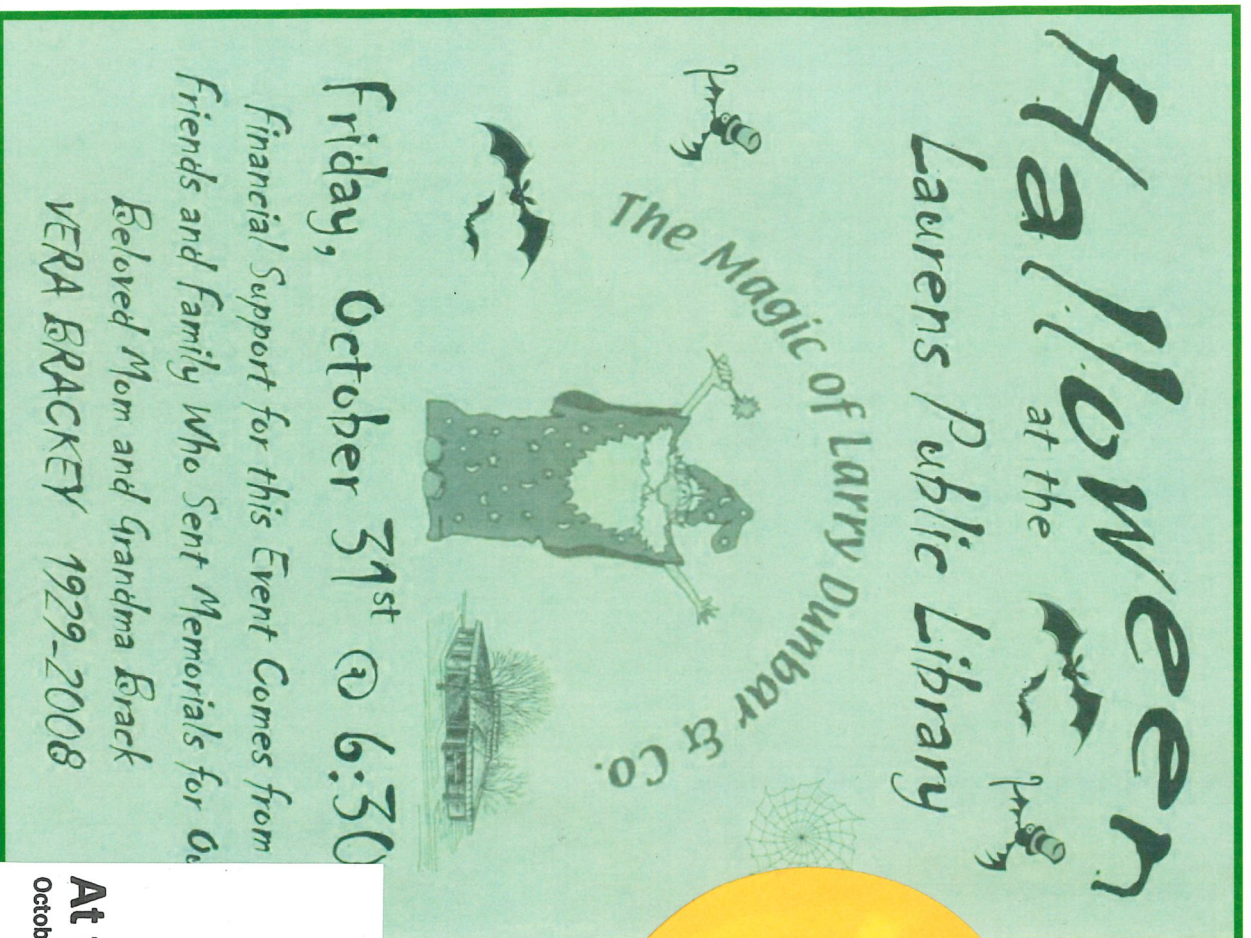 Halloween
at the
Laurens Public Library
The Magic of Larry Dunbar & Co.
Friday, October 31st @ 6:30
Financial Support for this Event Comes from
Friends and Family Who Sent Memorials for
Beloved Mom and Grandma Brack
VERA BRACKEY 1929-2008
At